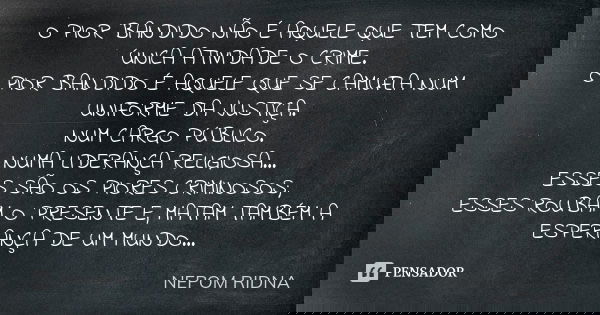 O PIOR BANDIDO NÃO É AQUELE QUE TEM COMO
ÚNICA ATIVIDADE O CRIME.
O PIOR BANDIDO É AQUELE QUE SE CAMUFLA NUM
UNIFORME DA JUSTIÇA.
NUM CARGO PÚBLICO.
NUMA LIDERANÇA RELIGIOSA...
ESSES SÃO OS PIORES CRIMINOSOS,
ESSES ROUBAM O PRESENTE E, MATAM TAMBÉM A
ESPERANÇA DE UM MUNDO...
NEPOM RIDNA
PENSADOR